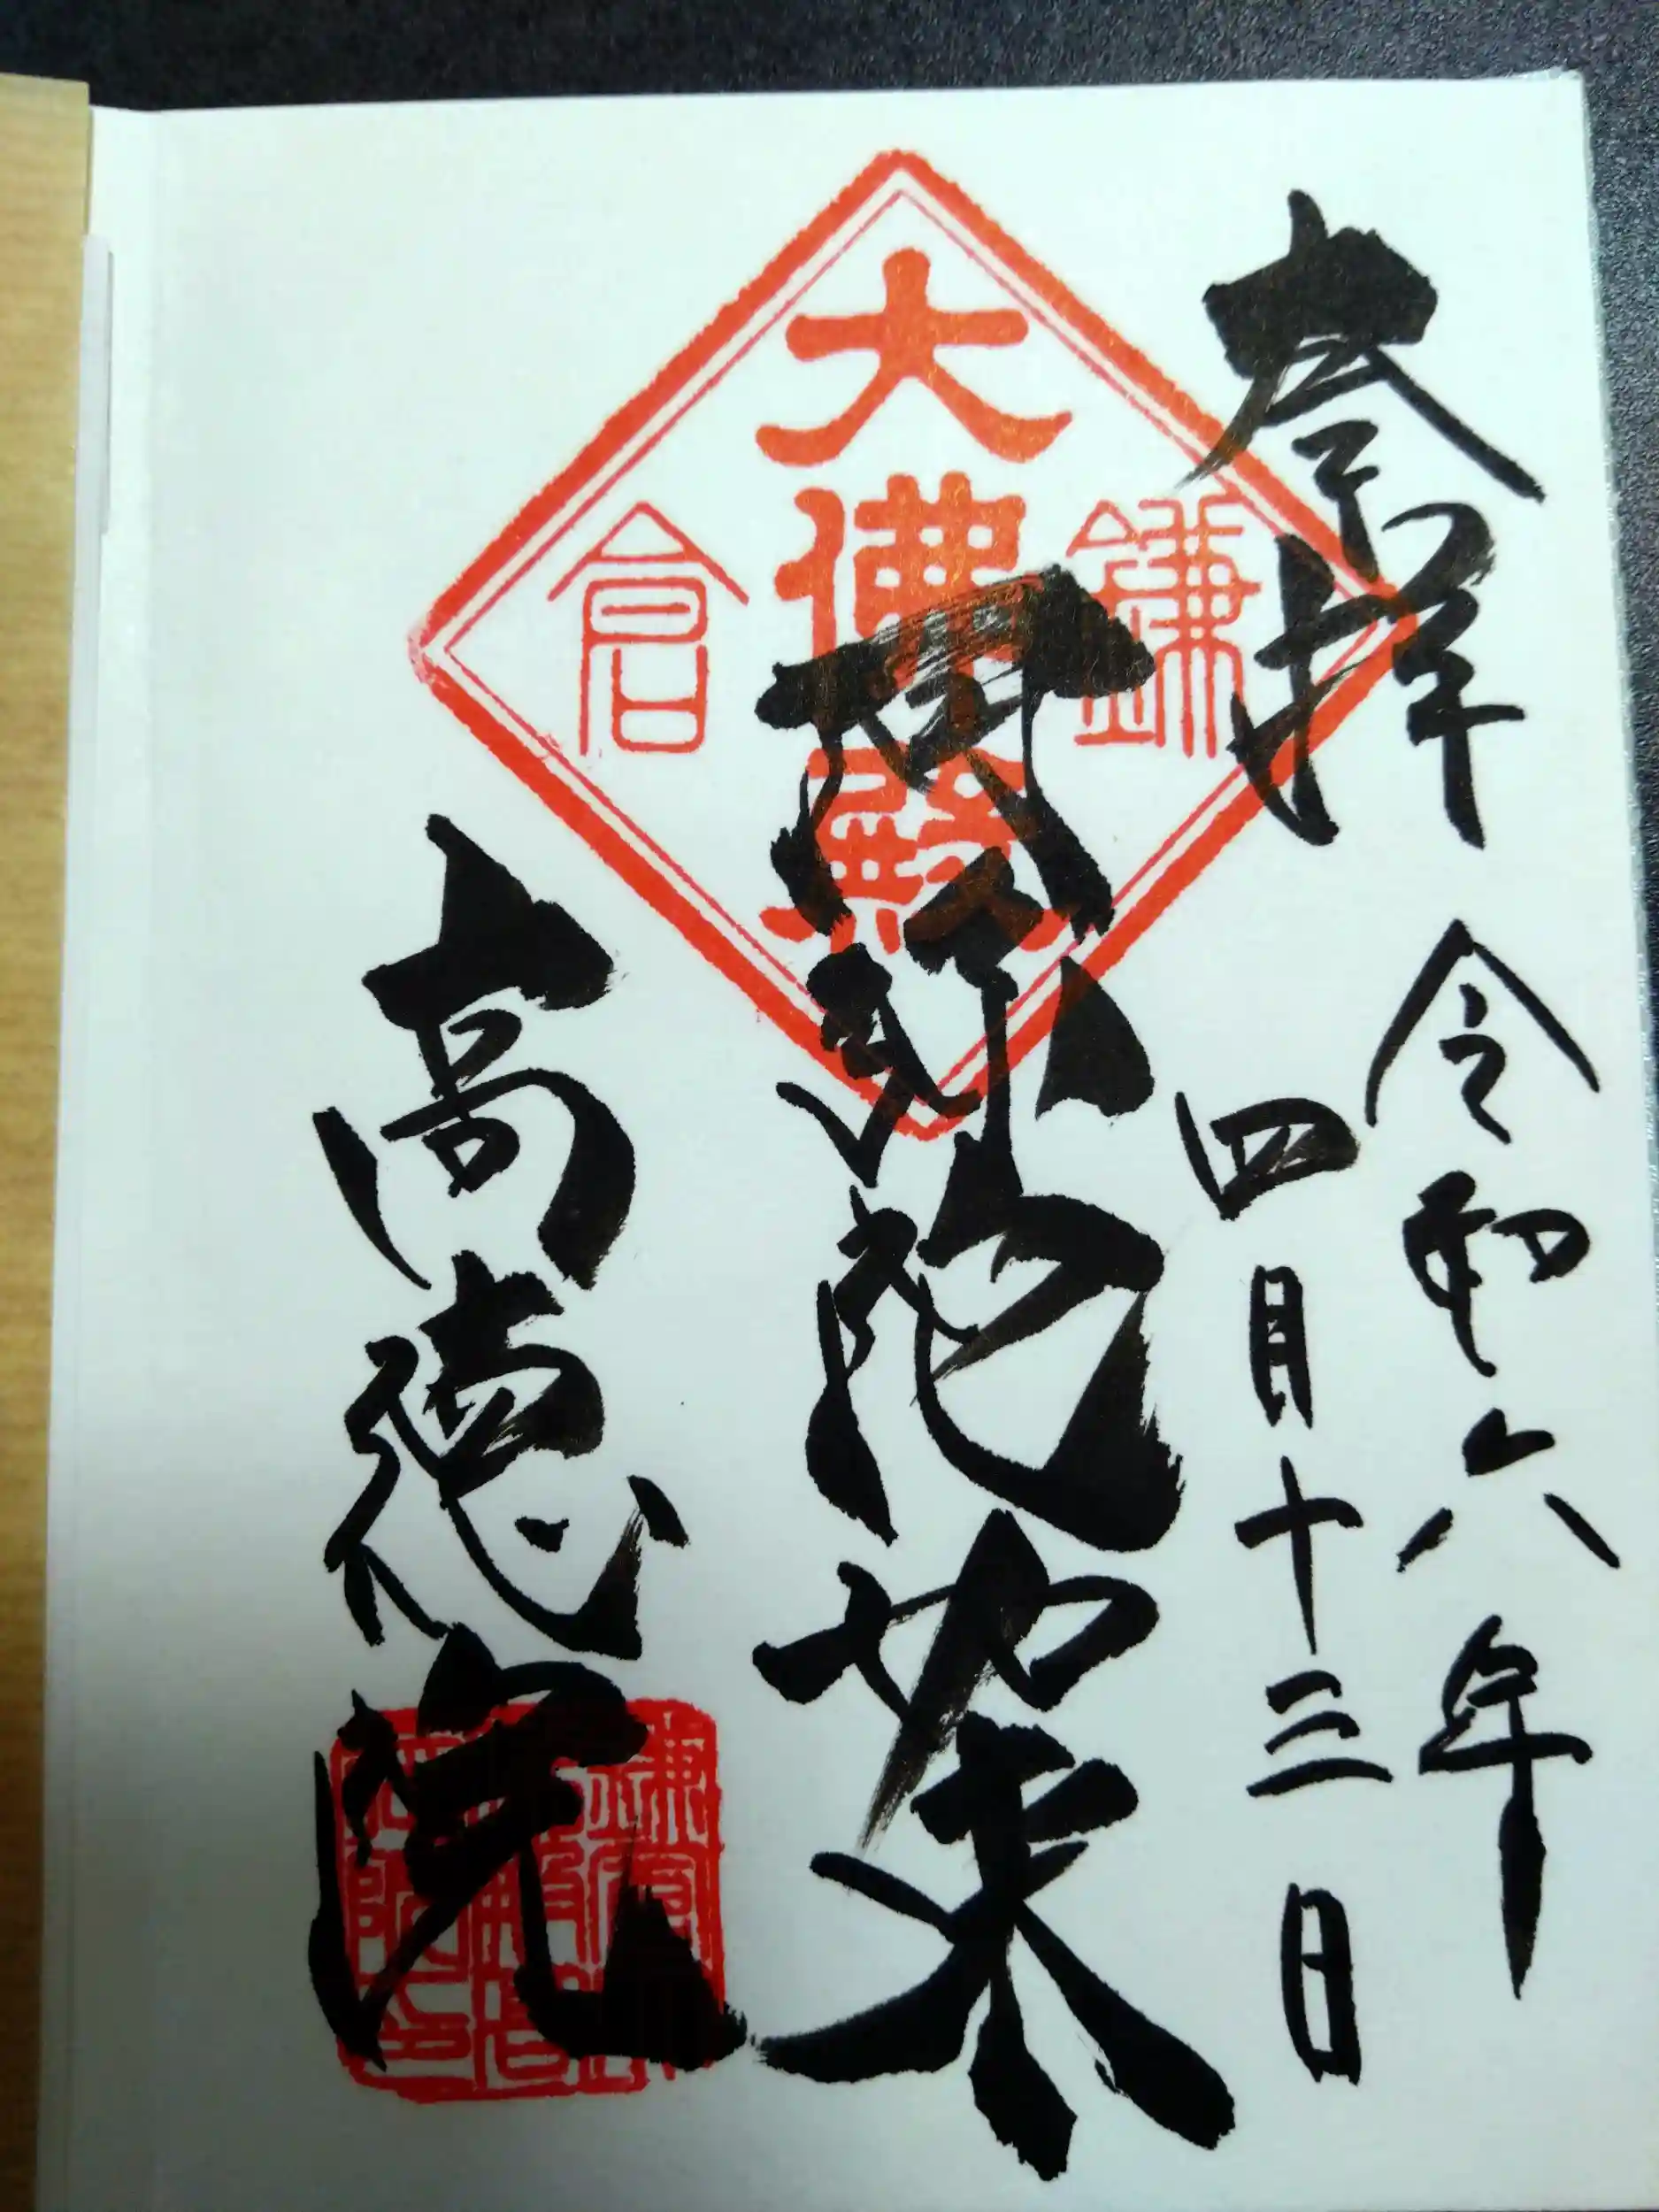 奉拝
令和六年
四月十三日
大佛殿
鎌倉
阿弥陀如来
高徳院